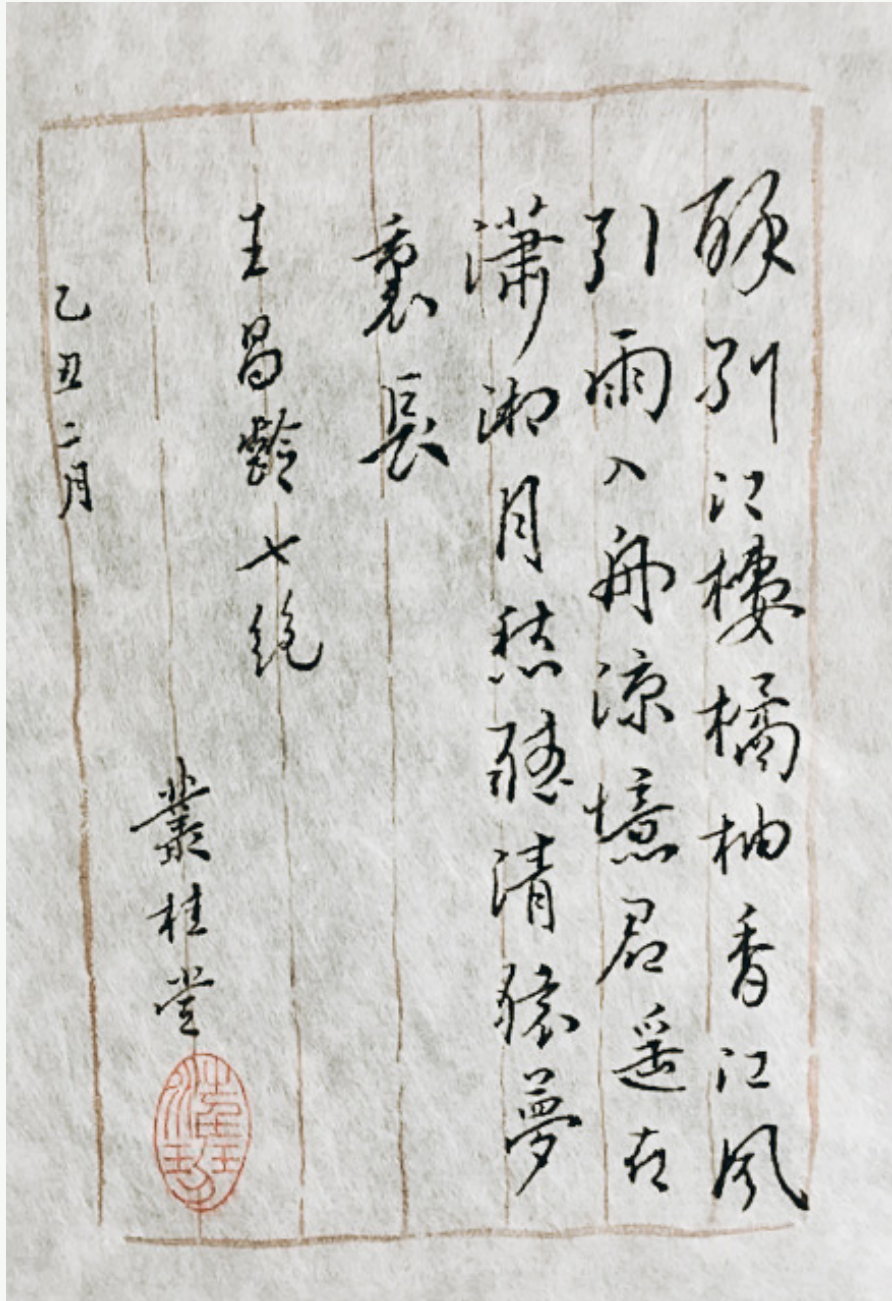 醉別江樓橘柚香江風
引雨入舟涼憶君遥在
瀟湘月愁聽清猿夢
裏長
王昌齡七絕
叢桂堂
乙丑二月